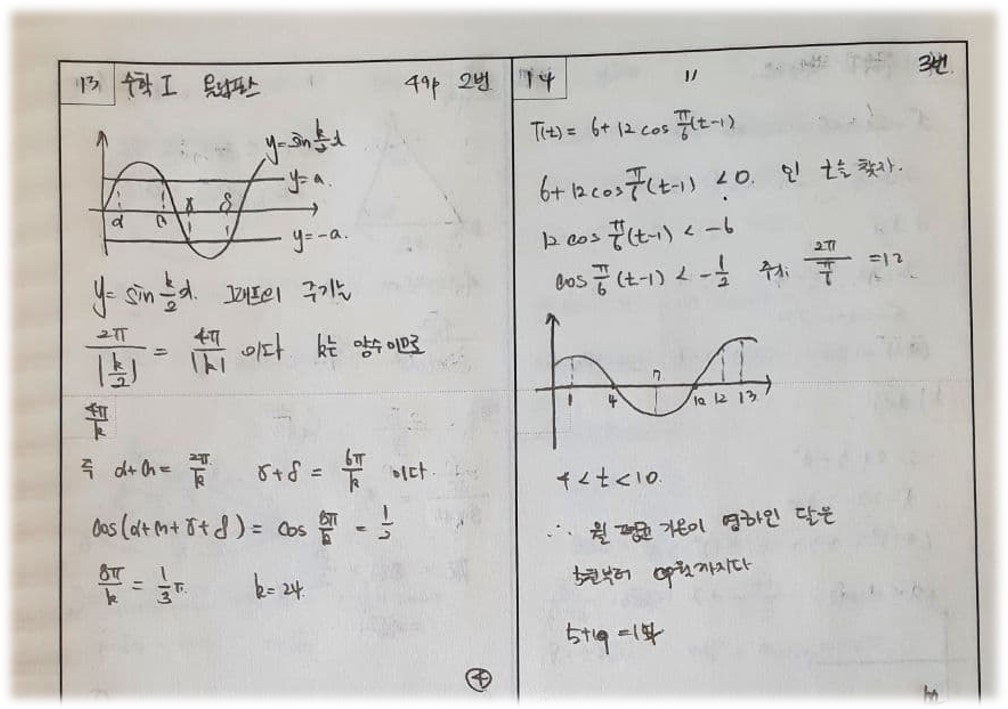 13 수학 I 올림포스 49p 2번
y = sin k/2 x
y = a.
α β γ δ
y = -a.
y = sin k/2 x. 그래프의 주기는
2π/|k/2| = 4π/|k| 이다 k는 양수 이므로
4π/k
즉 α+β = 2π/k γ+δ = 6π/k 이다.
cos(α+β+γ+δ) = cos 8π/k = 1/2
8π/k = 1/3 π. k = 24.
④
14 〃 3번
T(t) = 6 + 12 cos π/6 (t-1)
6 + 12 cos π/6 (t-1) < 0. 인 t를 찾자.
12 cos π/6 (t-1) < -6
cos π/6 (t-1) < -1/2 주기: 2π/(π/6) = 12
1 4 7 10 12 13
4 < t < 10.
∴ 월 평균 기온이 영하인 달은
5월부터 9월까지다